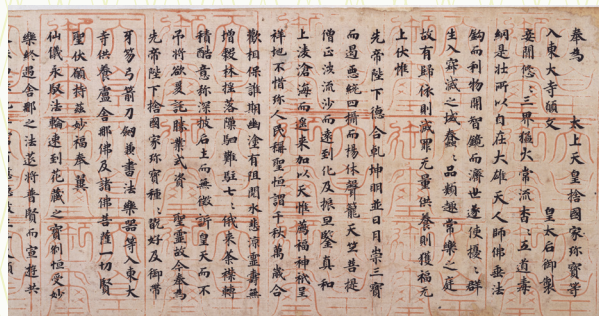 奉為　太上天皇捨國家珎寶等
入東大寺願文　皇太后御製
妾聞悠々三界猛火常流杳々五道毒
網是壯所以自在大雄天人師佛垂法
鉤而利物開智鏡而濟世遂使擾々群
生入寂滅之域蠢々品類趣常樂之庭
故有歸依則滅罪无量供養則獲福无
上伏惟
先帝陛下德合乾坤明並日月崇三寶
而遏惡統四攝而揚休聲籠天竺菩提
僧正涉流沙而遠到化及振旦鑒真和
上淩滄海而遙來加以天惟薦福神祇呈
祥地不惜珎人民稱聖恒謂千秋萬歲合
歡相保誰期幽塗有阻閱水悲涼靈壽無
增穀林搖落隙駟難駐七々俄來荼襟轉
積酷意弥深披后土而無徵訴皇天而不
弔將欲爰託勝業式資　聖靈故今奉為
先帝陛下捨國家珎寶種々翫好及御帶
牙笏弓箭刀劔兼書法樂器等入東大
寺供養盧舍那佛及諸佛菩薩一切賢
聖伏願持茲妙福奉翼
仙儀永馭法輪速到花藏之寶剎恒受妙
樂終遇舍那之法筵將普賢而宣遊共